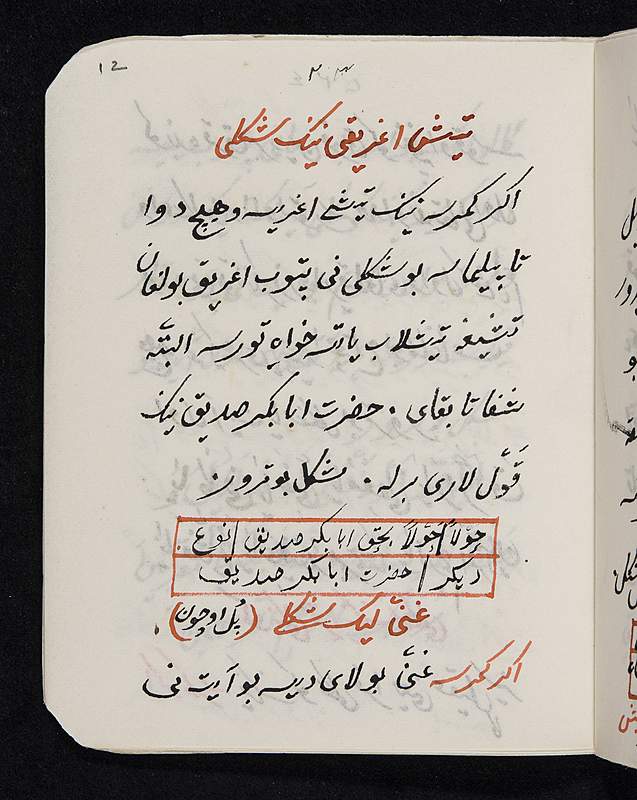 12
۳۳
تیش اغریقی نینک شکلی
اکر کمرسه نینک تیشی اغریسه وهیچ دوا
تاپیلماسه بو شکلی نی بتیوب اغریق بولغان
تشیغه تیشلاب یاتسه خواه تورسه البتّه
شفا تابقای . حضرت ابابکر صدیق نینک
قوّل لاری برله . شکل بوترور .
حوّلاً / حوّلاً بحق ابابکر صدیق / نوع .
دیکر / حضرت ابابکر صدیق
غنیّ لیک شکلی (پُل اوچون) .
اکر کمرسه غنیّ بولای دیسه بو آیت نی